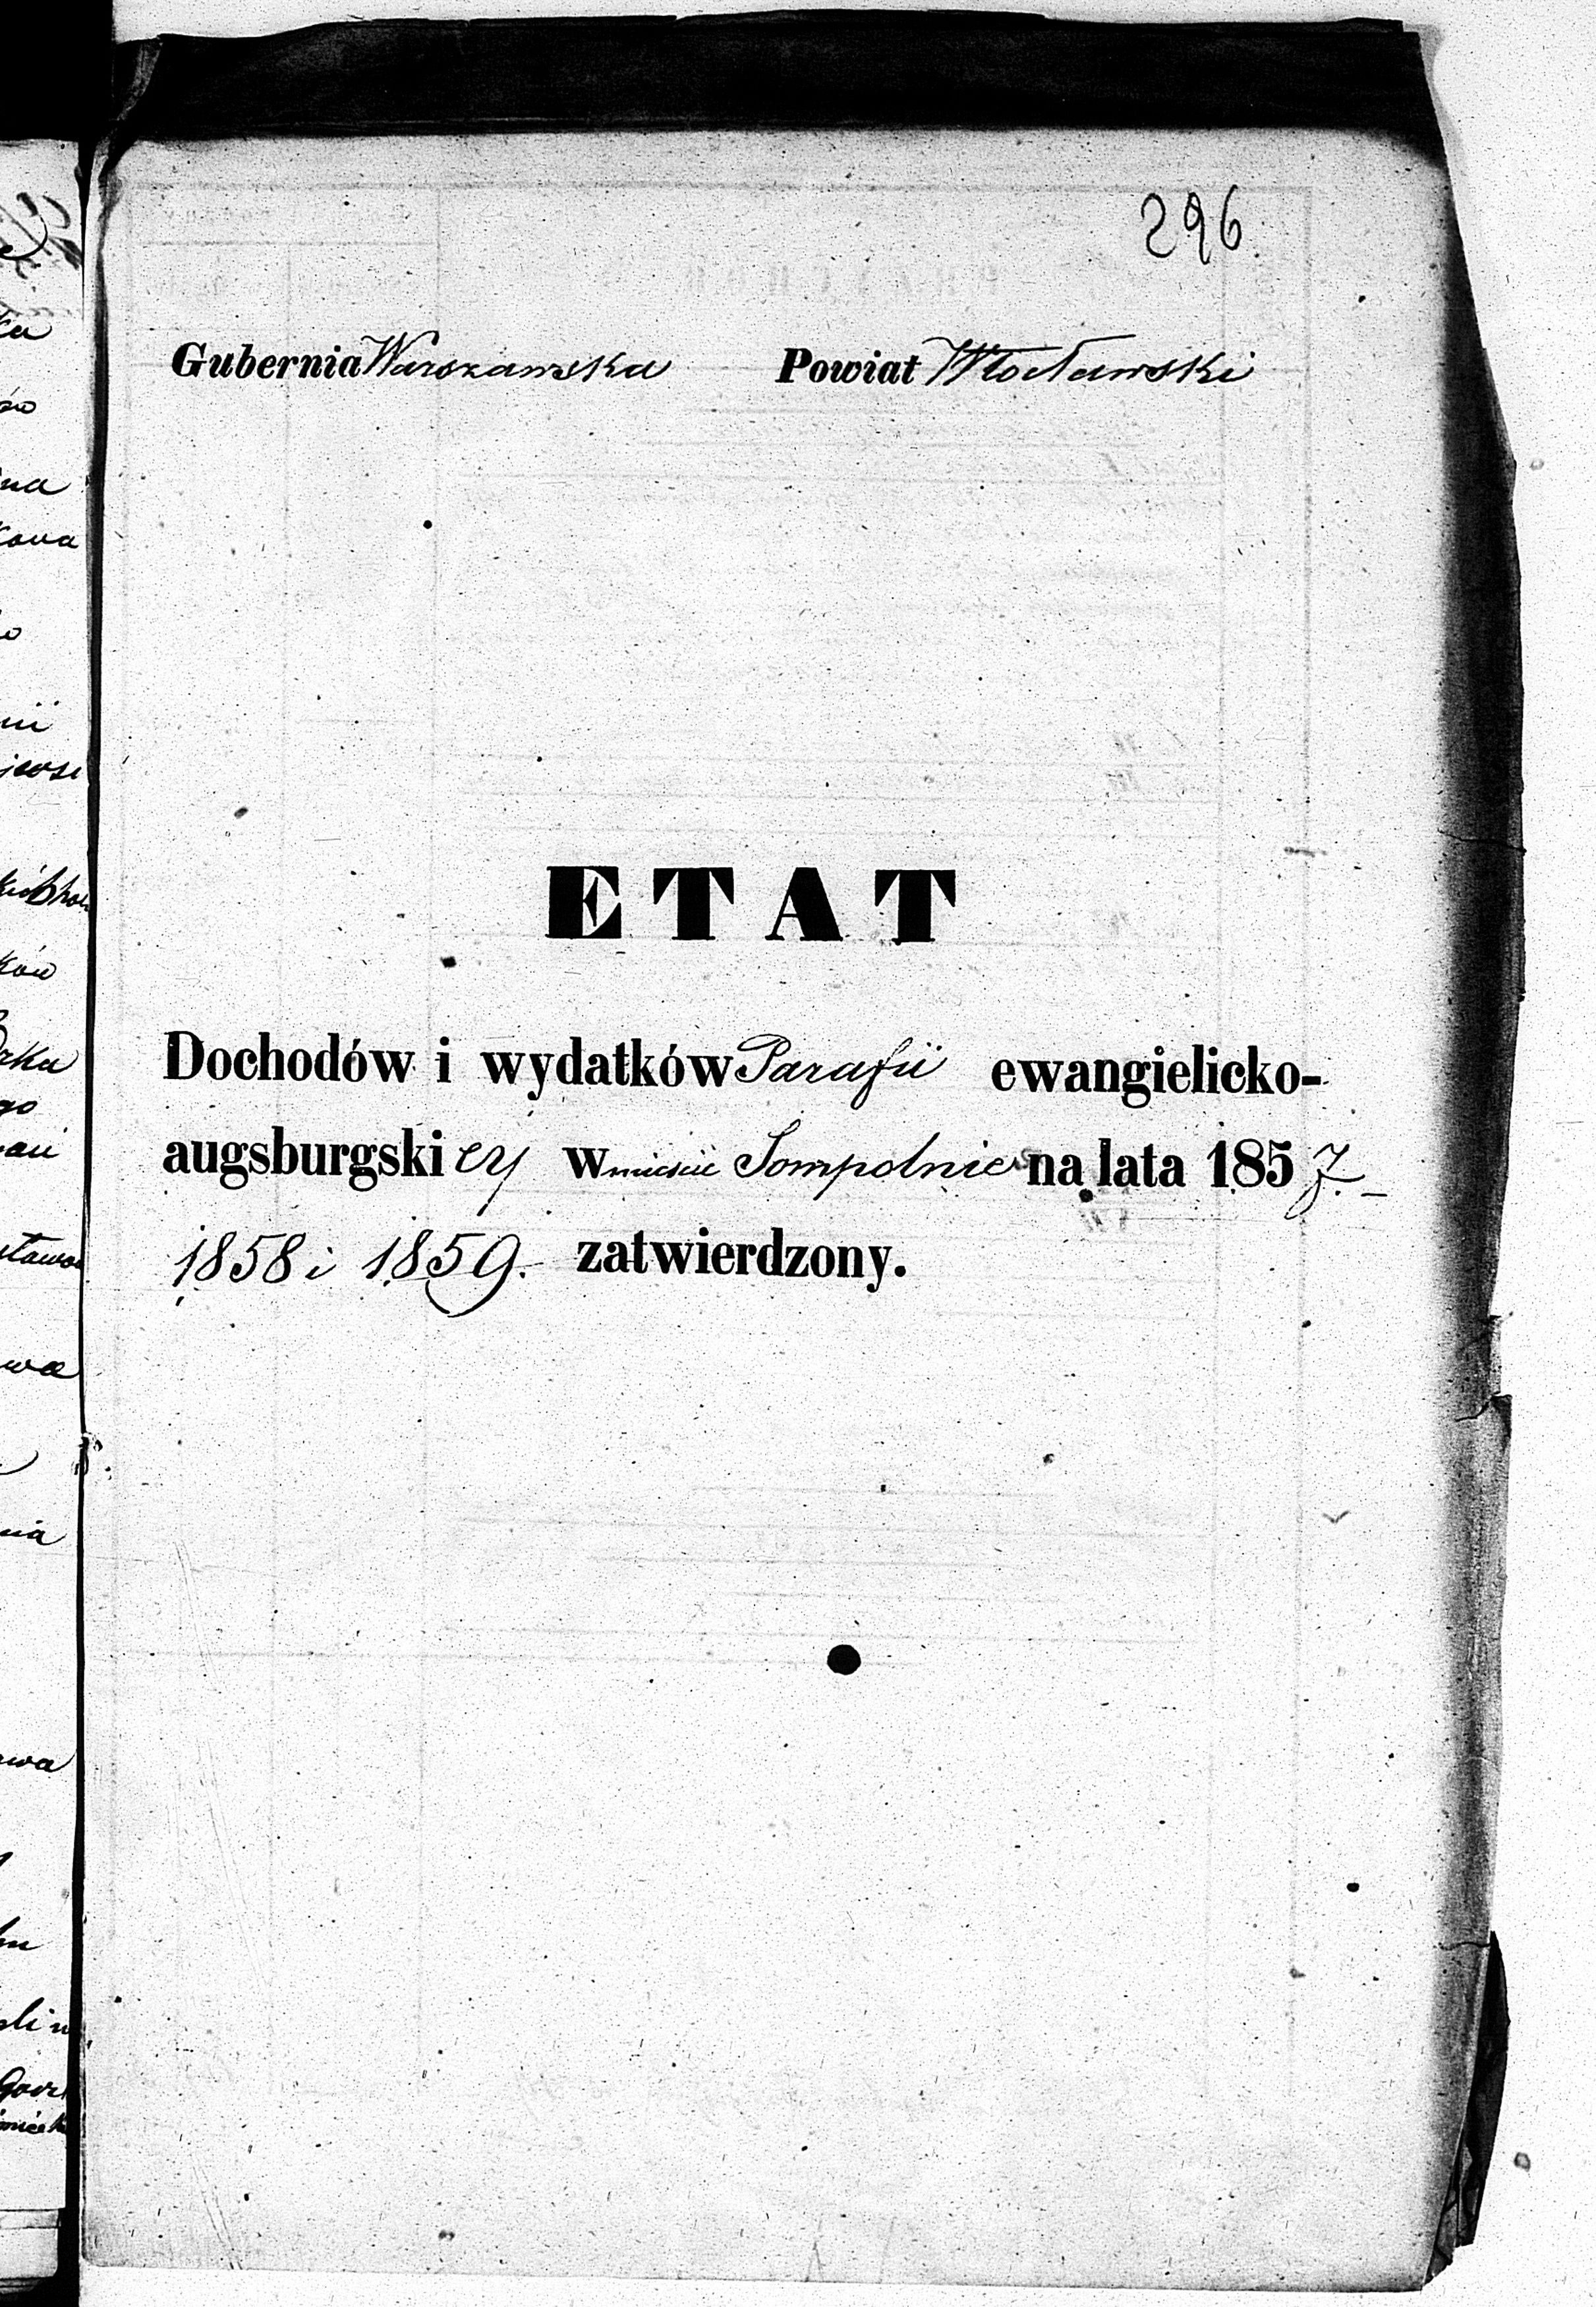 296
Gubernia Warszawska Powiat Włocławski
ETAT
Dochodów i wydatków Parafii ewangielicko-
augsburgskiey w mieście Sompolnie na lata 1857.
1858 i 1859. zatwierdzony.